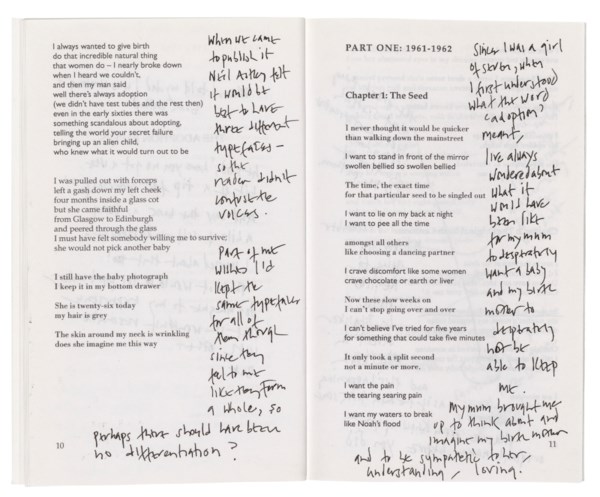 I always wanted to give birth
do that incredible natural thing
that women do – I nearly broke down
when I heard we couldn't,
and then my man said
well there's always adoption
(we didn't have test tubes and the rest then)
even in the early sixties there was
something scandalous about adopting,
telling the world your secret failure
bringing up an alien child,
who knew what it would turn out to be
I was pulled out with forceps
left a gash down my left cheek
four months inside a glass cot
but she came faithful
from Glasgow to Edinburgh
and peered through the glass
I must have felt somebody willing me to survive;
she would not pick another baby
I still have the baby photograph
I keep it in my bottom drawer
She is twenty-six today
my hair is grey
The skin around my neck is wrinkling
does she imagine me this way
When we came
to publish it
Neil Astley felt
it would be
best to have
three different
typefaces –
so the
reader didn't
confuse the
voices.
Part of me
wishes I'd
kept the
same typefaces
for all of
them though
since they
felt to me
like they form
a whole, so
perhaps there should have been
no differentiation?
10
PART ONE: 1961-1962
Chapter 1: The Seed
I never thought it would be quicker
than walking down the mainstreet
I want to stand in front of the mirror
swollen bellied so swollen bellied
The time, the exact time
for that particular seed to be singled out
I want to lie on my back at night
I want to pee all the time
amongst all others
like choosing a dancing partner
I crave discomfort like some women
crave chocolate or earth or liver
Now these slow weeks on
I can't stop going over and over
I can't believe I've tried for five years
for something that could take five minutes
It only took a split second
not a minute or more.
I want the pain
the tearing searing pain
I want my waters to break
like Noah's flood
Since I was a girl
of seven, when
I first understood
what the word
'adoption'
meant,
I've always
wondered about
what it
would have
been like
for my mum
to desperately
want a baby
and my birth
mother to
desperately
not be
able to keep
me.
My mum brought me
up to think about and
imagine my birth mother
and to be sympathetic to her,
understanding, loving.
11